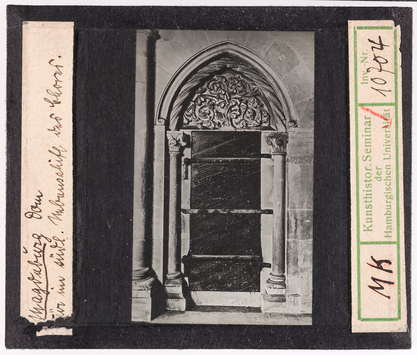 Magdeburg Dom
Tür im südl. Nebenschiff des Chores.
Kunsthistor. Seminar
der
Hamburgischen Universität
Inv.-Nr.
10704
MK